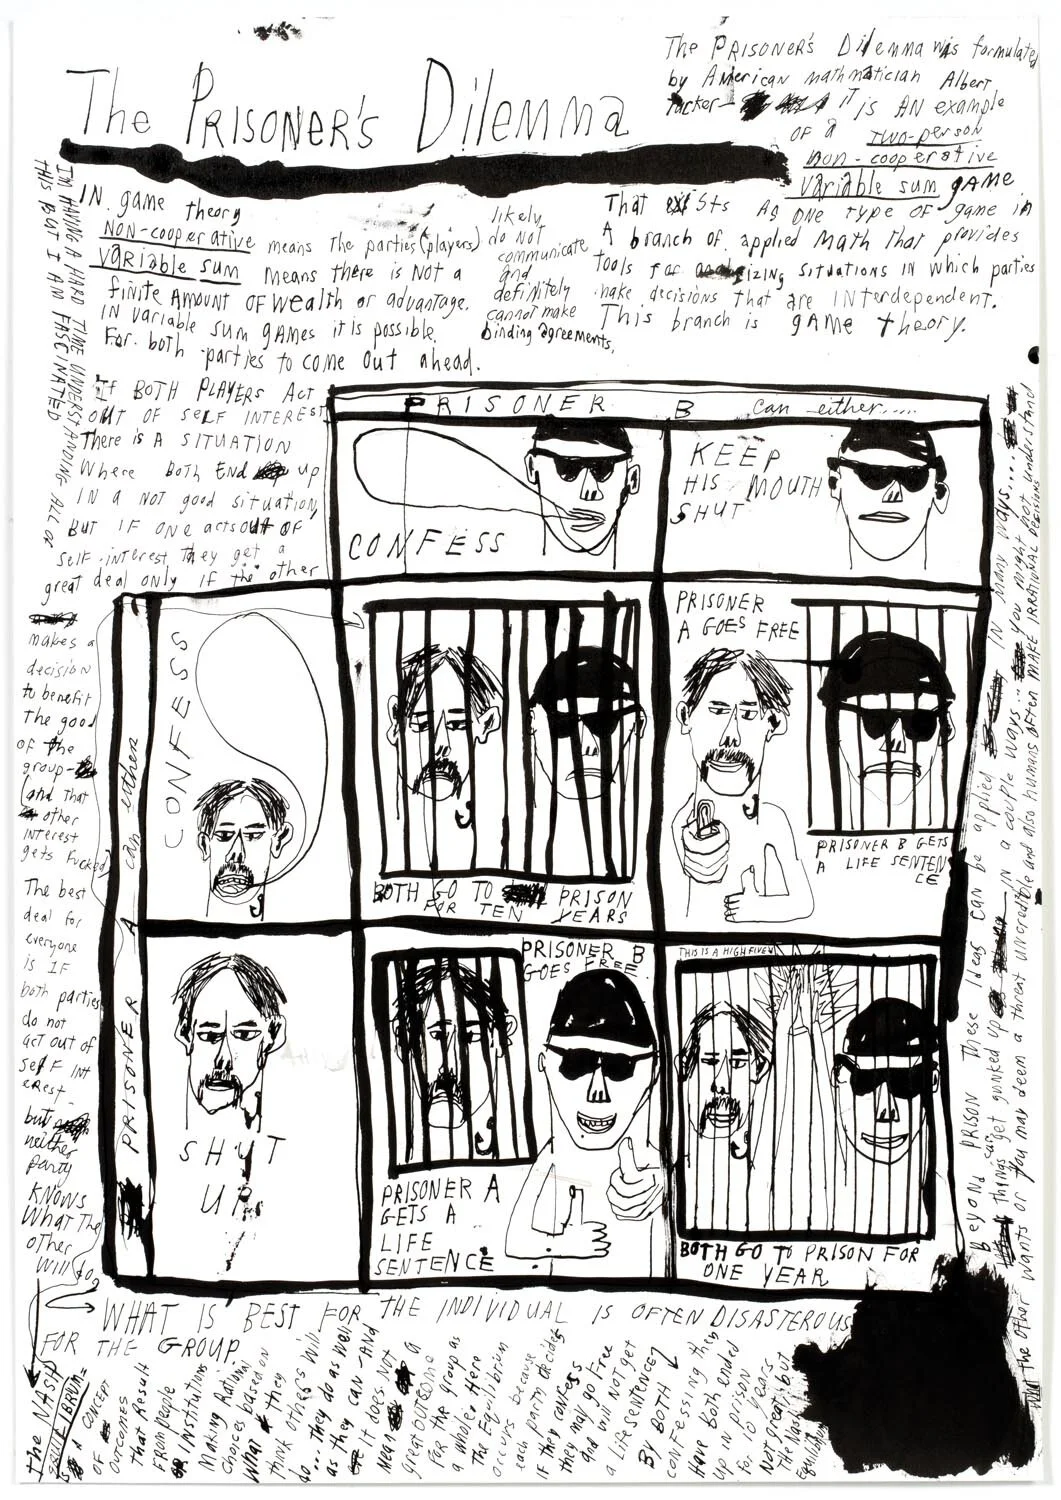 The PRISONER'S Dilemma
The PRISONER'S Dilemma was formulated
by American mathmatician Albert
Tucker- it is AN example
OF a two-person
non-cooperative
variable sum gAME
That exists As ONE type OF game in
A branch of applied Math that provides
tools for situations in which parties
make decisions that are INterdependent.
This branch is gAME theory.
IN game theory
NON-cooperative means The parties (players)
variable sum means there is Not a
finite AMOUNT OF Wealth or advantage.
IN variable sum gAMES it is possible
For both parties to come out ahead.
likely
do Not
communicate
and
definitely
cannot make
binding agreements,
I'M HAVING A HARD TIME UNDERSTANDING ALL OF
THIS BUT I AM FASCINATED
If BOTH PLAYERS ACT
OUT OF SELF INTEREST
There is A SITUATION
Where BOTH END up
IN a NOT good situation
BUT IF ONE acts out OF
self-interest they get a
great deal only if the other
makes a
decision
to benefit
The good
of the
group-
(and that
other
interest
gets Fucked)
The best
deal for
everyone
is IF
both parties
do not
act out of
self INT
EREST-
but
neither
party
KNOWS
What The
other
will do
PRISONER B can either.....
CONFESS
KEEP
HIS MOUTH
SHUT
PRISONER A can either
CONFESS
BOTH GO TO PRISON
FOR TEN YEARS
PRISONER
A GOES FREE
PRISONER B GETS
A LIFE SENTEN
CE
SHUT
UP
PRISONER B
GOES FREE
PRISONER A
GETS A
LIFE
SENTENCE
THIS IS A HIGH FIVE
BOTH GO TO PRISON FOR
ONE YEAR
Beyond PRISON These ideas can be applied IN MANY ways...
things can get gunked up IN a couple ways... you might not understand
what the other wants or you may deem a threat uncredible and also humans often MAKE IRRATIONAL DECISIONS
WHAT IS BEST FOR THE INDIVIDUAL IS OFTEN DISASTEROUS
FOR THE GROUP
the NASH
EQUILIBRIUM=
is a CONCEPT
OF
outcomes
that Result
From people
OR INstitutions
Making Rational
Choices based on
What they
think others will
do... They do as well
as they can - AND
it does NOT
Mean a
great OUTCOME
For the group as
a whole. Here
The Equilibrium
occurs because
each party decides
IF they confess
they may go Free
and will Not get
a life sentence
By BOTH
confessing they
Have both ended
up in prison
for 10 years
Not great but
The Nash
Equilibrium